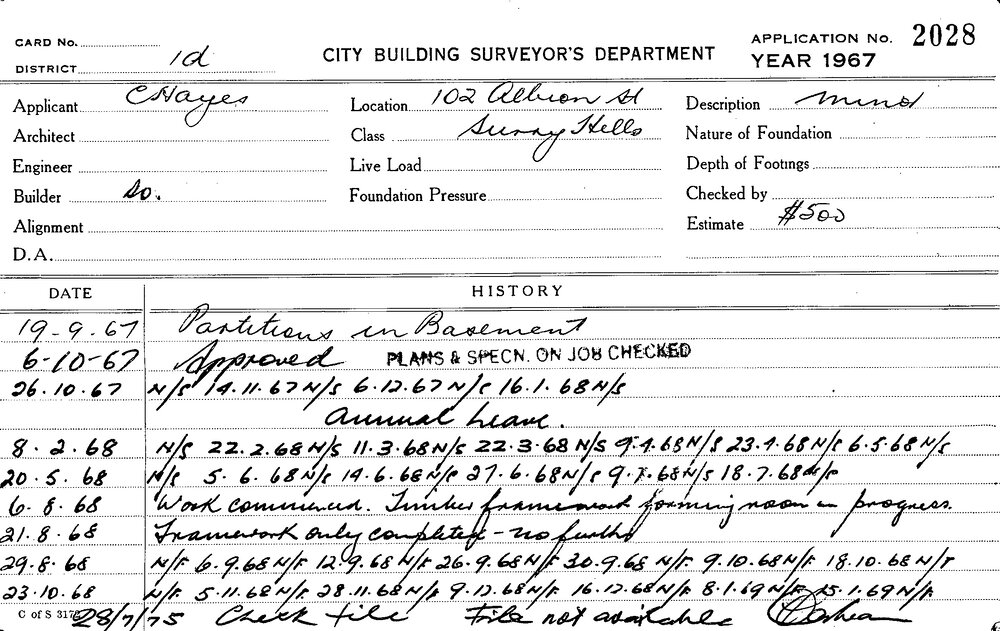 CARD No.
DISTRICT 1d
CITY BUILDING SURVEYOR'S DEPARTMENT
APPLICATION No. 2028
YEAR 1967
Applicant C Hayes
Location 102 Albion St
Description minor
Architect
Class Surry Hills
Nature of Foundation
Engineer
Live Load
Depth of Footings
Builder do.
Foundation Pressure
Checked by
Alignment
Estimate $500
D.A.
DATE HISTORY
19-9.67 Partitions in Basement
6-10-67 Approved PLANS & SPECN. ON JOB CHECKED
26.10.67 N/S 14.11.67 N/S 6.12.67 N/S 16.1.68 N/S
Annual Leave.
8.2.68 N/S 22.2.68 N/S 11.3.68 N/S 22.3.68 N/S 9.4.68 N/S 23.4.68 N/S 6.5.68 N/S
20.5.68 N/S 5.6.68 N/S 14.6.68 N/S 27.6.68 N/S 9.7.68 N/S 18.7.68 N/S
6.8.68 Work commenced. Timber framework forming room in progress.
21.8.68 Framework only completed - no further
29.8.68 N/F 6.9.68 N/F 12.9.68 N/F 26.9.68 N/F 30.9.68 N/F 9.10.68 N/F 18.10.68 N/F
23.10.68 N/F 5.11.68 N/F 28.11.68 N/F 9.12.68 N/F 16.12.68 N/F 8.1.69 N/F 15.1.69 N/F
C of S 317
28/7/75 Check File File not available